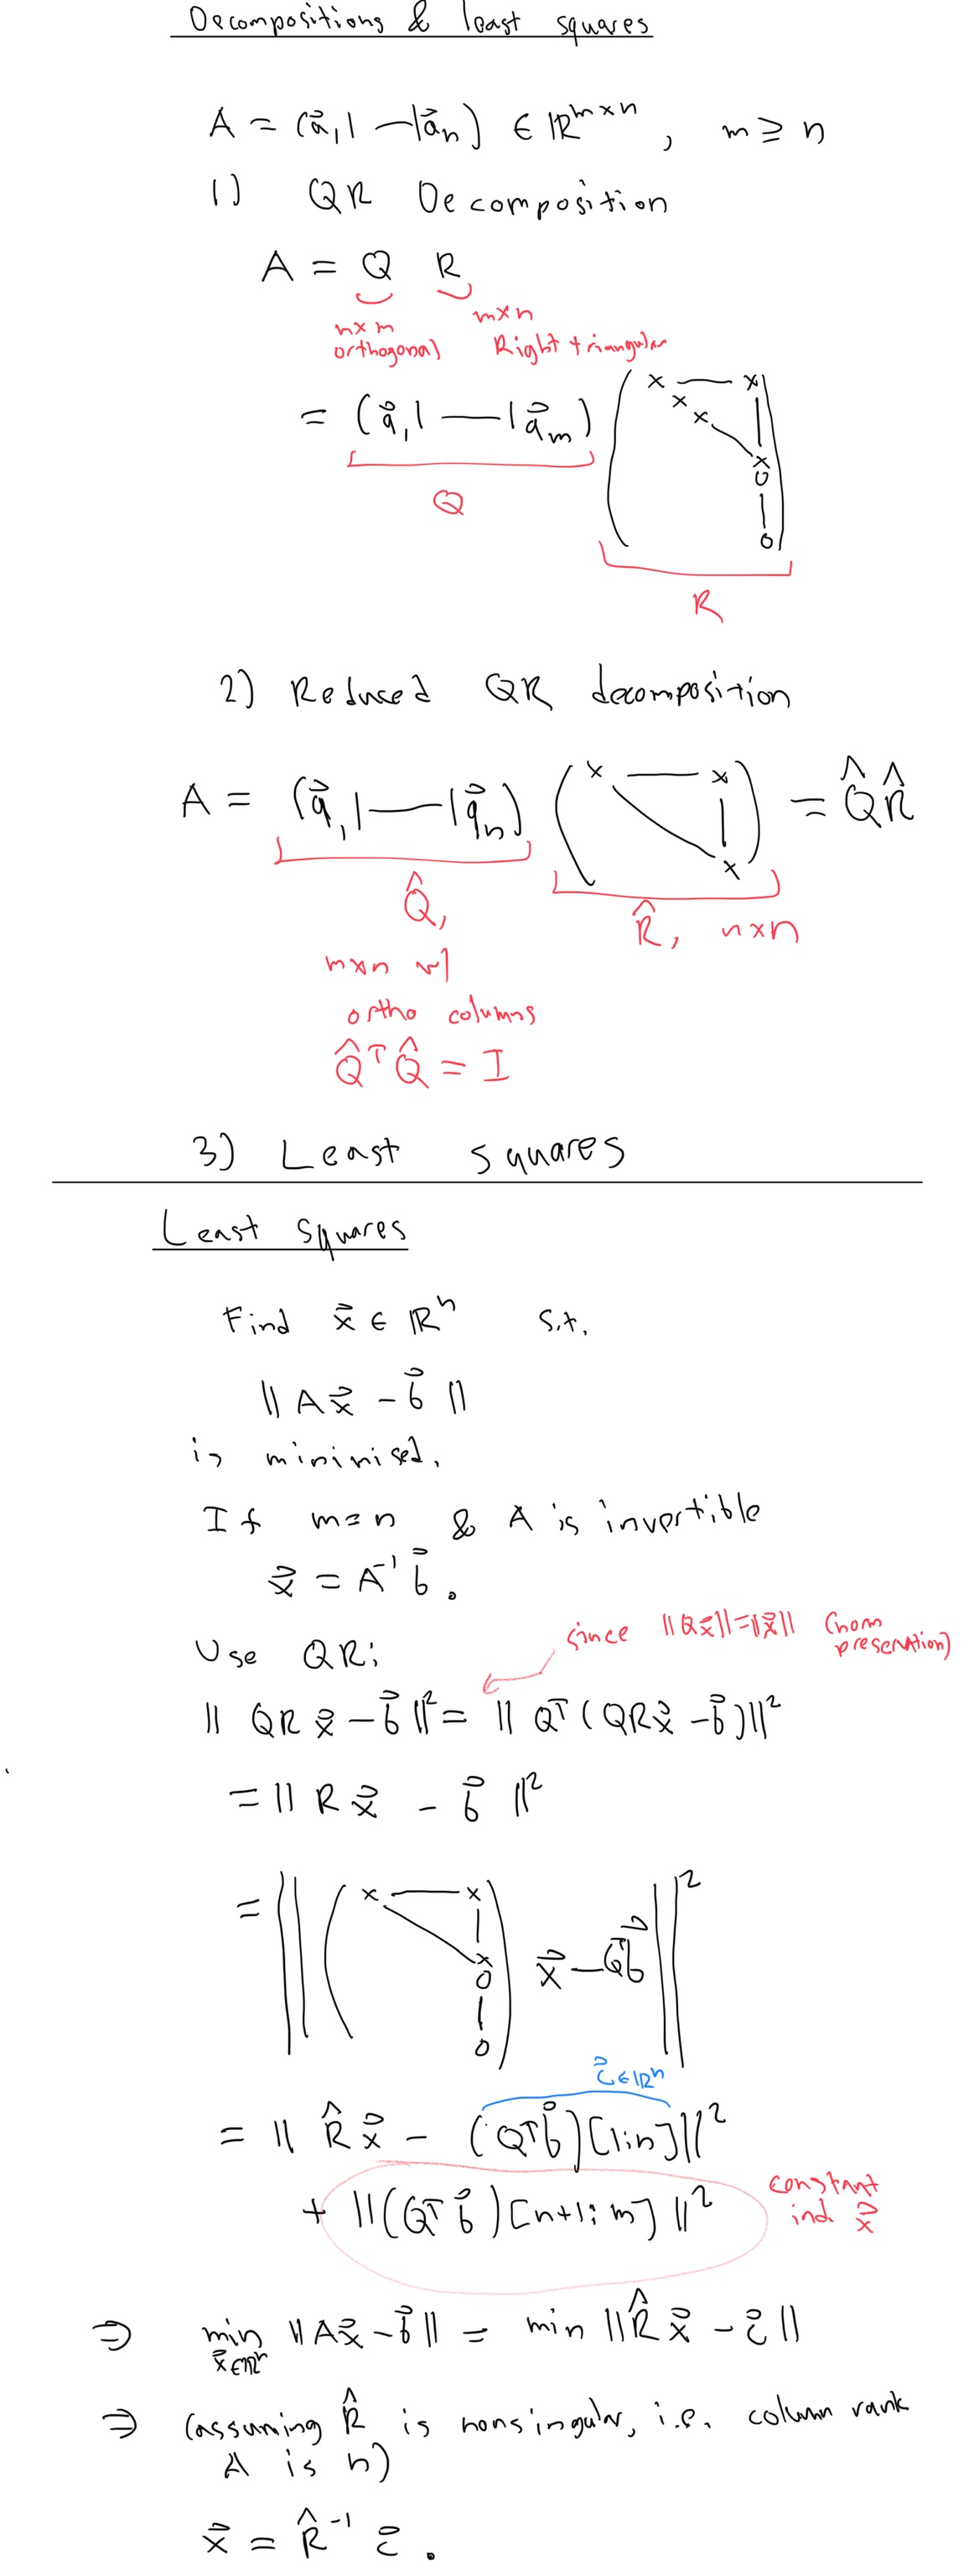 Decompositions & least squares
A = (a⃗₁|—|a⃗ₙ) ∈ ℝᵐˣⁿ, m ⩾ n
1) QR Decomposition
A = Q R
m×m orthogonal
m×n Right triangular
= (q⃗₁|—|q⃗ₘ) ( x — x x x | x 0 | 0 )
Q
R
2) Reduced QR decomposition
A = (q⃗₁|—|q⃗ₙ) ( x — x | x ) = Q̂R̂
Q̂,
m×n w/
ortho columns
Q̂ᵀQ̂ = I
R̂, n×n
3) Least squares
Least squares
Find x⃗ ∈ ℝⁿ s.t.
‖Ax⃗ - b⃗‖
is minimised.
If m=n & A is invertible
x⃗ = A⁻¹b⃗.
since ‖Qx⃗‖=‖x⃗‖ (norm
preservation)
Use QR:
‖QRx⃗ - b⃗‖² = ‖Qᵀ(QRx⃗ - b⃗)‖²
= ‖Rx⃗ - b⃗‖²
= ‖( x — x | x 0 | 0 ) x⃗ - Qᵀb⃗‖²
c⃗ ∈ ℝⁿ
= ‖R̂x⃗ - (Qᵀb⃗)[1:n]‖²
+ ‖(Qᵀb⃗)[n+1:m]‖²
constant
ind. x⃗
⇒ min x⃗∈ℝⁿ ‖Ax⃗ - b⃗‖ = min ‖R̂x⃗ - c⃗‖
⇒ (assuming R̂ is nonsingular, i.e. column rank
A is n)
x⃗ = R̂⁻¹ c⃗.